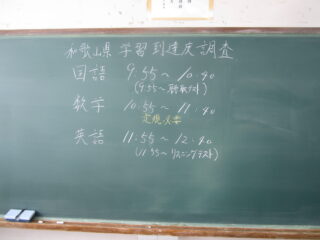 和歌山県 学習到達度調査
国語 9.55〜10.40
(9.55〜聴取テスト)
数学 10.55〜11.40
定規必要
英語 11.55〜12.40
(11.55〜リスニングテスト)